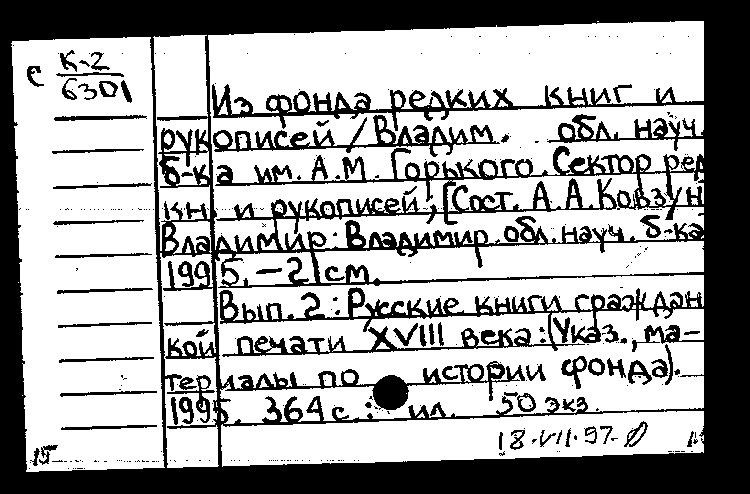 с К-2
6301
Из фонда редких книг и
рукописей / Владим. обл. науч.
б-ка им. А.М. Горького. Сектор ред
кн. и рукописей; [Сост. А.А. Ковзун
Владимир: Владимир. обл. науч. б-ка
1995. – 21 см.
Вып. 2: Русские книги граждан
кой печати XVIII века: (Указ., ма-
териалы по истории фонда).
1995. 364 с.: ил. 50 экз.
18.VII.97.
15